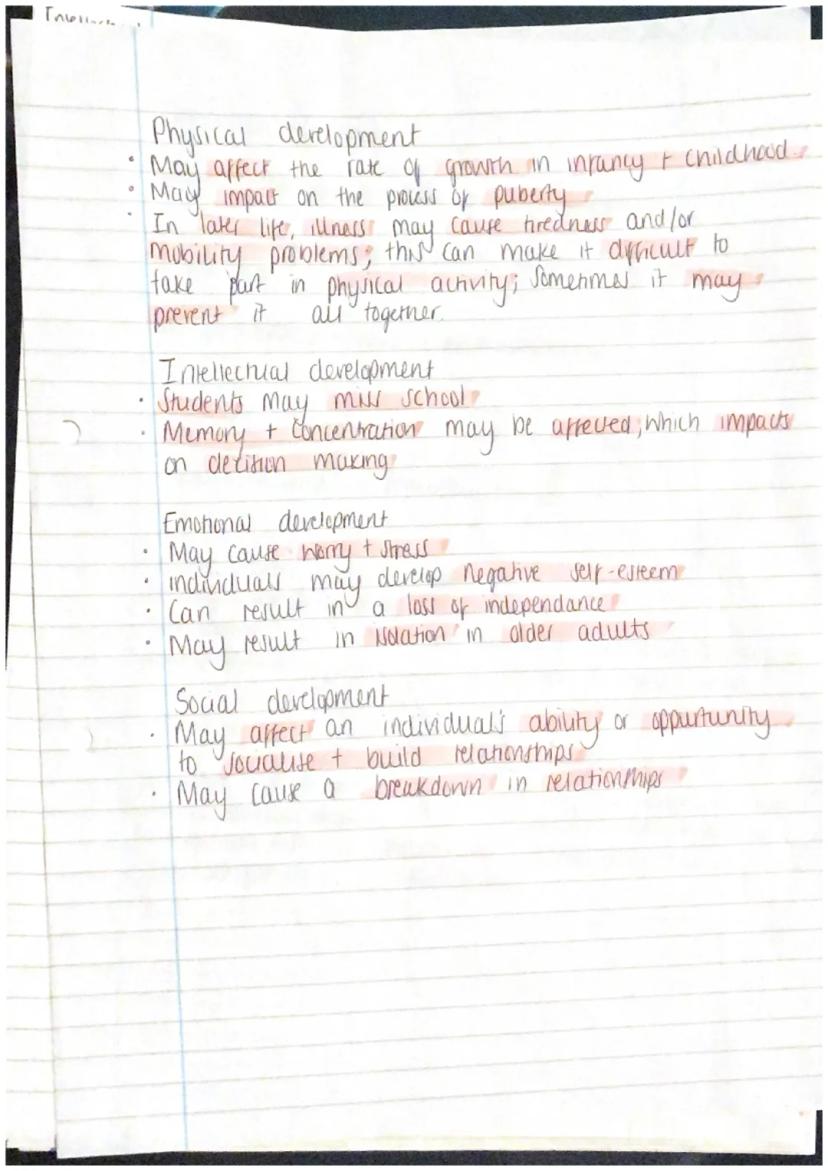 Physical development
• May affect the rate of growth in infancy + childhood
• May impact on the process of puberty
• In later life, illness may cause tiredness and/or
mobility problems; this can make it difficult to
take part in physical activity; sometimes it may
prevent it all together.
Intellectual development
• Students may miss school
• Memory + concentration may be affected; which impacts
on decision making
Emotional development
• May cause worry + stress
• individuals may develop negative self-esteem
• Can result in a loss of independance
• May result in isolation in older adults
Social development
• May affect an individual's ability or oppurtunity
to socialise + build relationships
• May cause a breakdown in relationships